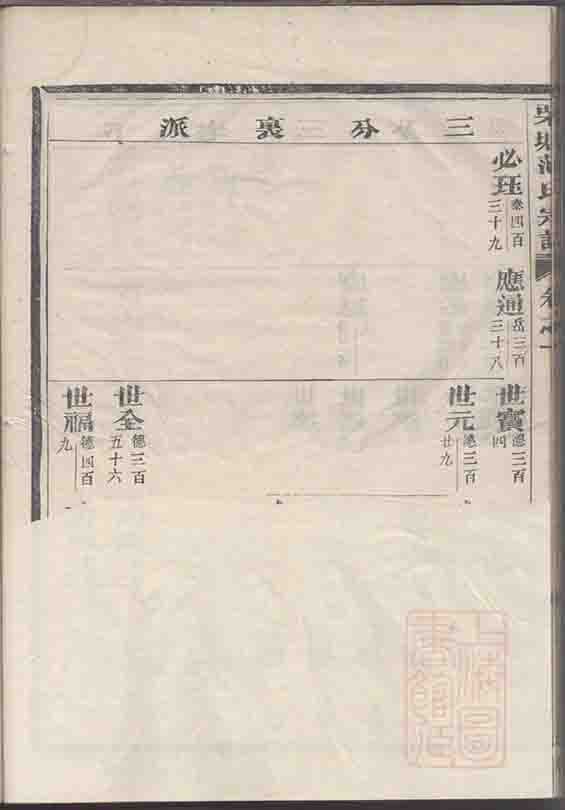 氏宗譜
卷之一
三分裏派
必珏
泰四百
三十九
應通
岳三百
三十八
世寶
德三百
四
世元
德三百
廿九
世全
德三百
五十六
世福
德四百
九
上海圖
書館藏